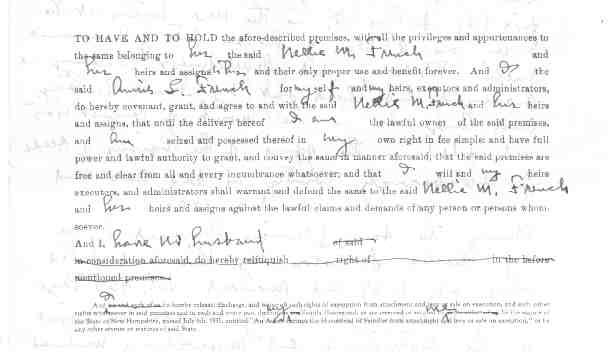 TO HAVE AND TO HOLD the afore-described premises, with all the privileges and appurtenances to
the same belonging to her the said Nellie M. French and
her heirs and assigns to her and their only proper use and benefit forever. And I the
said Annie L. French for myself and my heirs, executors and administrators,
do hereby covenant, grant, and agree to and with the said Nellie M. French and her heirs
and assigns, that until the delivery hereof I am the lawful owner of the said premises,
and am seized and possessed thereof in my own right in fee simple; and have full
power and lawful authority to grant, and convey the same in manner aforesaid; that the said premises are
free and clear from all and every incumbrance whatsoever; and that I will and my heirs
executors, and administrators shall warrant and defend the same to the said Nellie M. French
and her heirs and assigns against the lawful claims and demands of any person or persons whom-
soever.
And I, have no husband of said
in consideration aforesaid, do hereby relinquish right of in the before-
mentioned premises.
I
And do hereby release, discharge, and waive all such rights of exemption from attachment and levy or sale on execution, and such other
rights whatsoever in said premises and in each and every part thereof, my as are reserved or my by the statute of
the State of New Hampshire, passed July 4th, 1851, entitled "An Act to exempt the Homestead of Families from attachment and levy or sale on execution," or by
any other statute or statutes of said State.